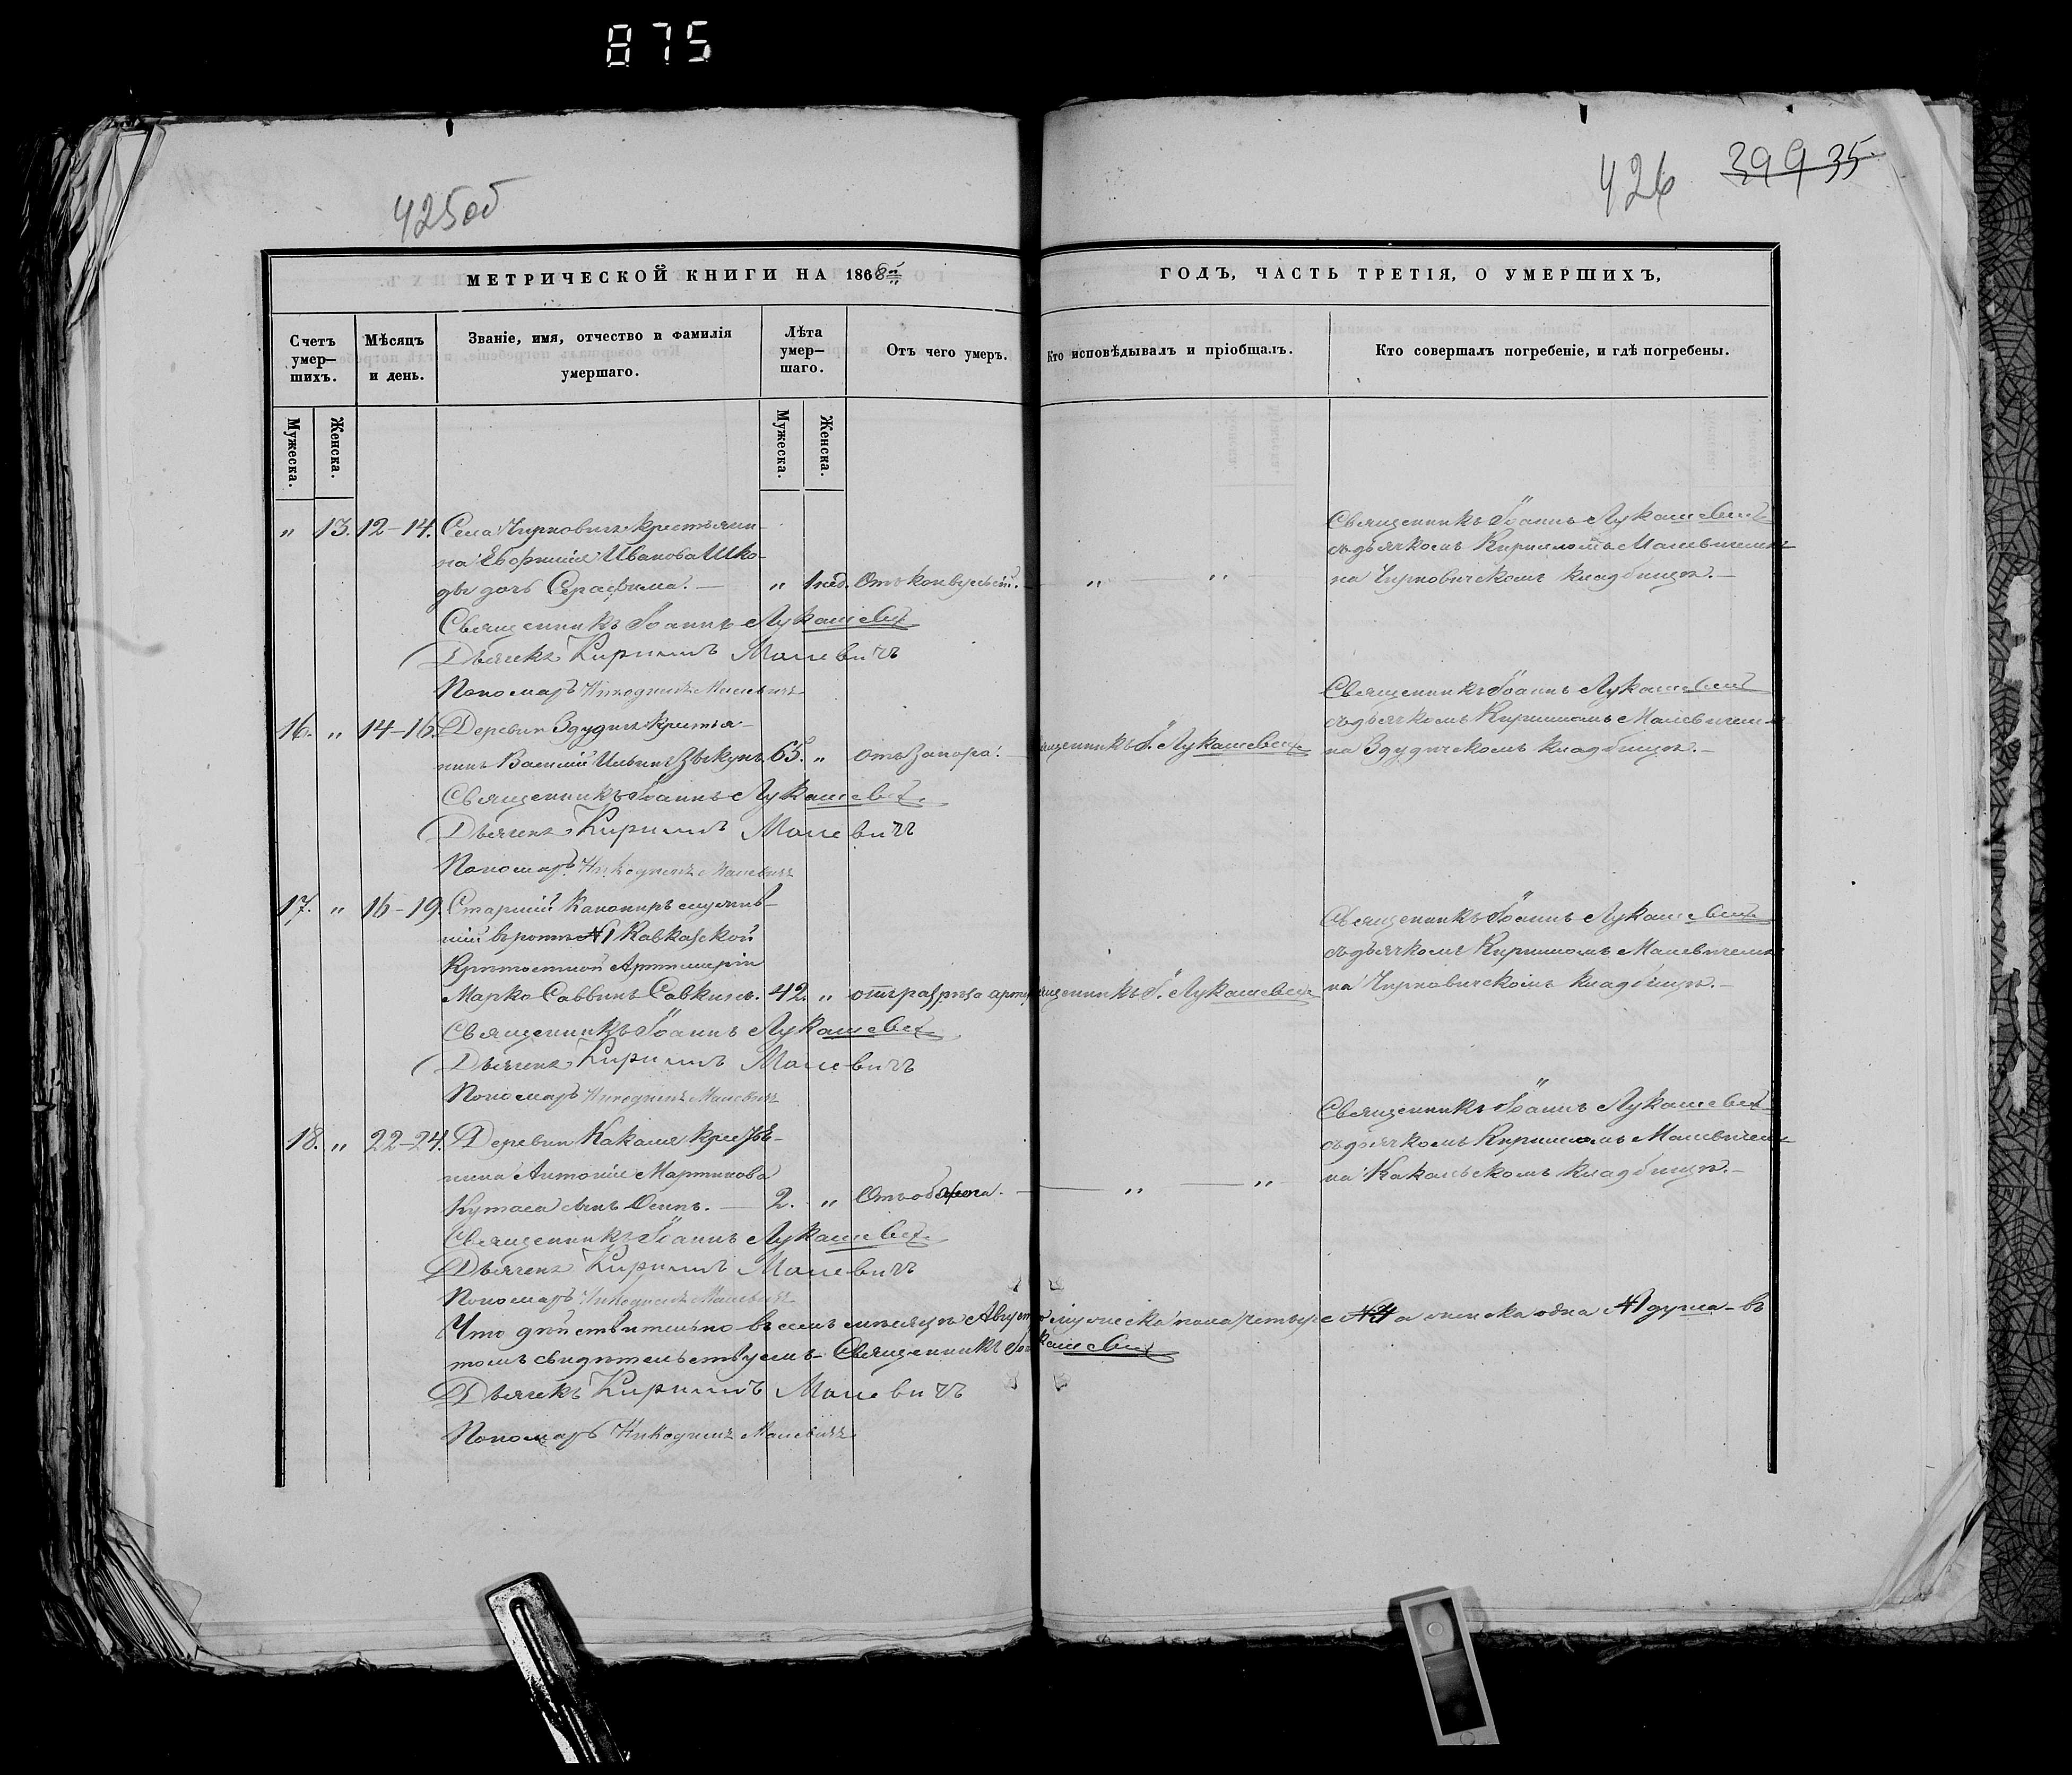 875
425об
426 39935
МЕТРИЧЕСКОЙ КНИГИ НА 1868й
ГОДЪ, ЧАСТЬ ТРЕТІЯ, О УМЕРШИХЪ,
Счетъ умер-шихъ.
Мѣсяцъ и день.
Званіе, имя, отчество и фамилія умершаго.
Лѣта умер-шаго.
Отъ чего умеръ.
Кто исповѣдывалъ и пріобщалъ.
Кто совершалъ погребеніе, и гдѣ погребены.
Мужеска.
Женска.
Мужеска.
Женска.
" 13. 12-14. Села Чирковичъ крестьяни-
на Ивановa Шко-
ды дочь Серафима. — " 1 нед. Отъ конвульсій. — " "
Священникъ Іоаннъ Лукашевичъ
съ дьячкомъ Кирилломъ Малевичемъ
на Чирковичскомъ кладбищѣ. —
Священникъ Іоаннъ Лукашевичъ
Дьячекъ Кириллъ Малевичъ
Пономарь Никодимъ Малевичъ
16. " 14-16. Деревни Здудичъ крестья-
нинъ Василій Ильинъ Зыкунъ. 65. " отъ запора. Священникъ І. Лукашевичъ
Священникъ Іоаннъ Лукашевичъ
съ дьячкомъ Кирилломъ Малевичемъ
на Здудичскомъ кладбищѣ. —
Священникъ Іоаннъ Лукашевичъ
Дьячекъ Кириллъ Малевичъ
Пономарь Никодимъ Малевичъ
17. " 16-19. Старшій Канониръ служив-
шій въ ротѣ №1 Кавказской
Крѣпостной Артиллеріи
Марко Саввинъ Савкинъ. 42. " отъ разрыва Священникъ І. Лукашевичъ
Священникъ Іоаннъ Лукашевичъ
съ дьячкомъ Кирилломъ Малевичемъ
на Чирковичскомъ кладбищѣ. —
Священникъ Іоаннъ Лукашевичъ
Дьячекъ Кириллъ Малевичъ
Пономарь Никодимъ Малевичъ
18. " 22-24. Деревни Какаля крестья-
нина Антонія Мартинова
Кутаса сынъ Осипъ. — 2. " Отъ обжога. — " — "
Священникъ Іоаннъ Лукашевичъ
съ дьячкомъ Кирилломъ Малевичемъ
на Какальскомъ кладбищѣ. —
Священникъ Іоаннъ Лукашевичъ
Дьячекъ Кириллъ Малевичъ
Пономарь Никодимъ Малевичъ
Что дѣйствительно въ семъ мѣсяцѣ Августѣ мужеска пола четыре №4 а женска одна №1 душа - въ
томъ свидѣтельствуемъ Священникъ Лукашевичъ
Дьячекъ Кириллъ Малевичъ
Пономарь Никодимъ Малевичъ